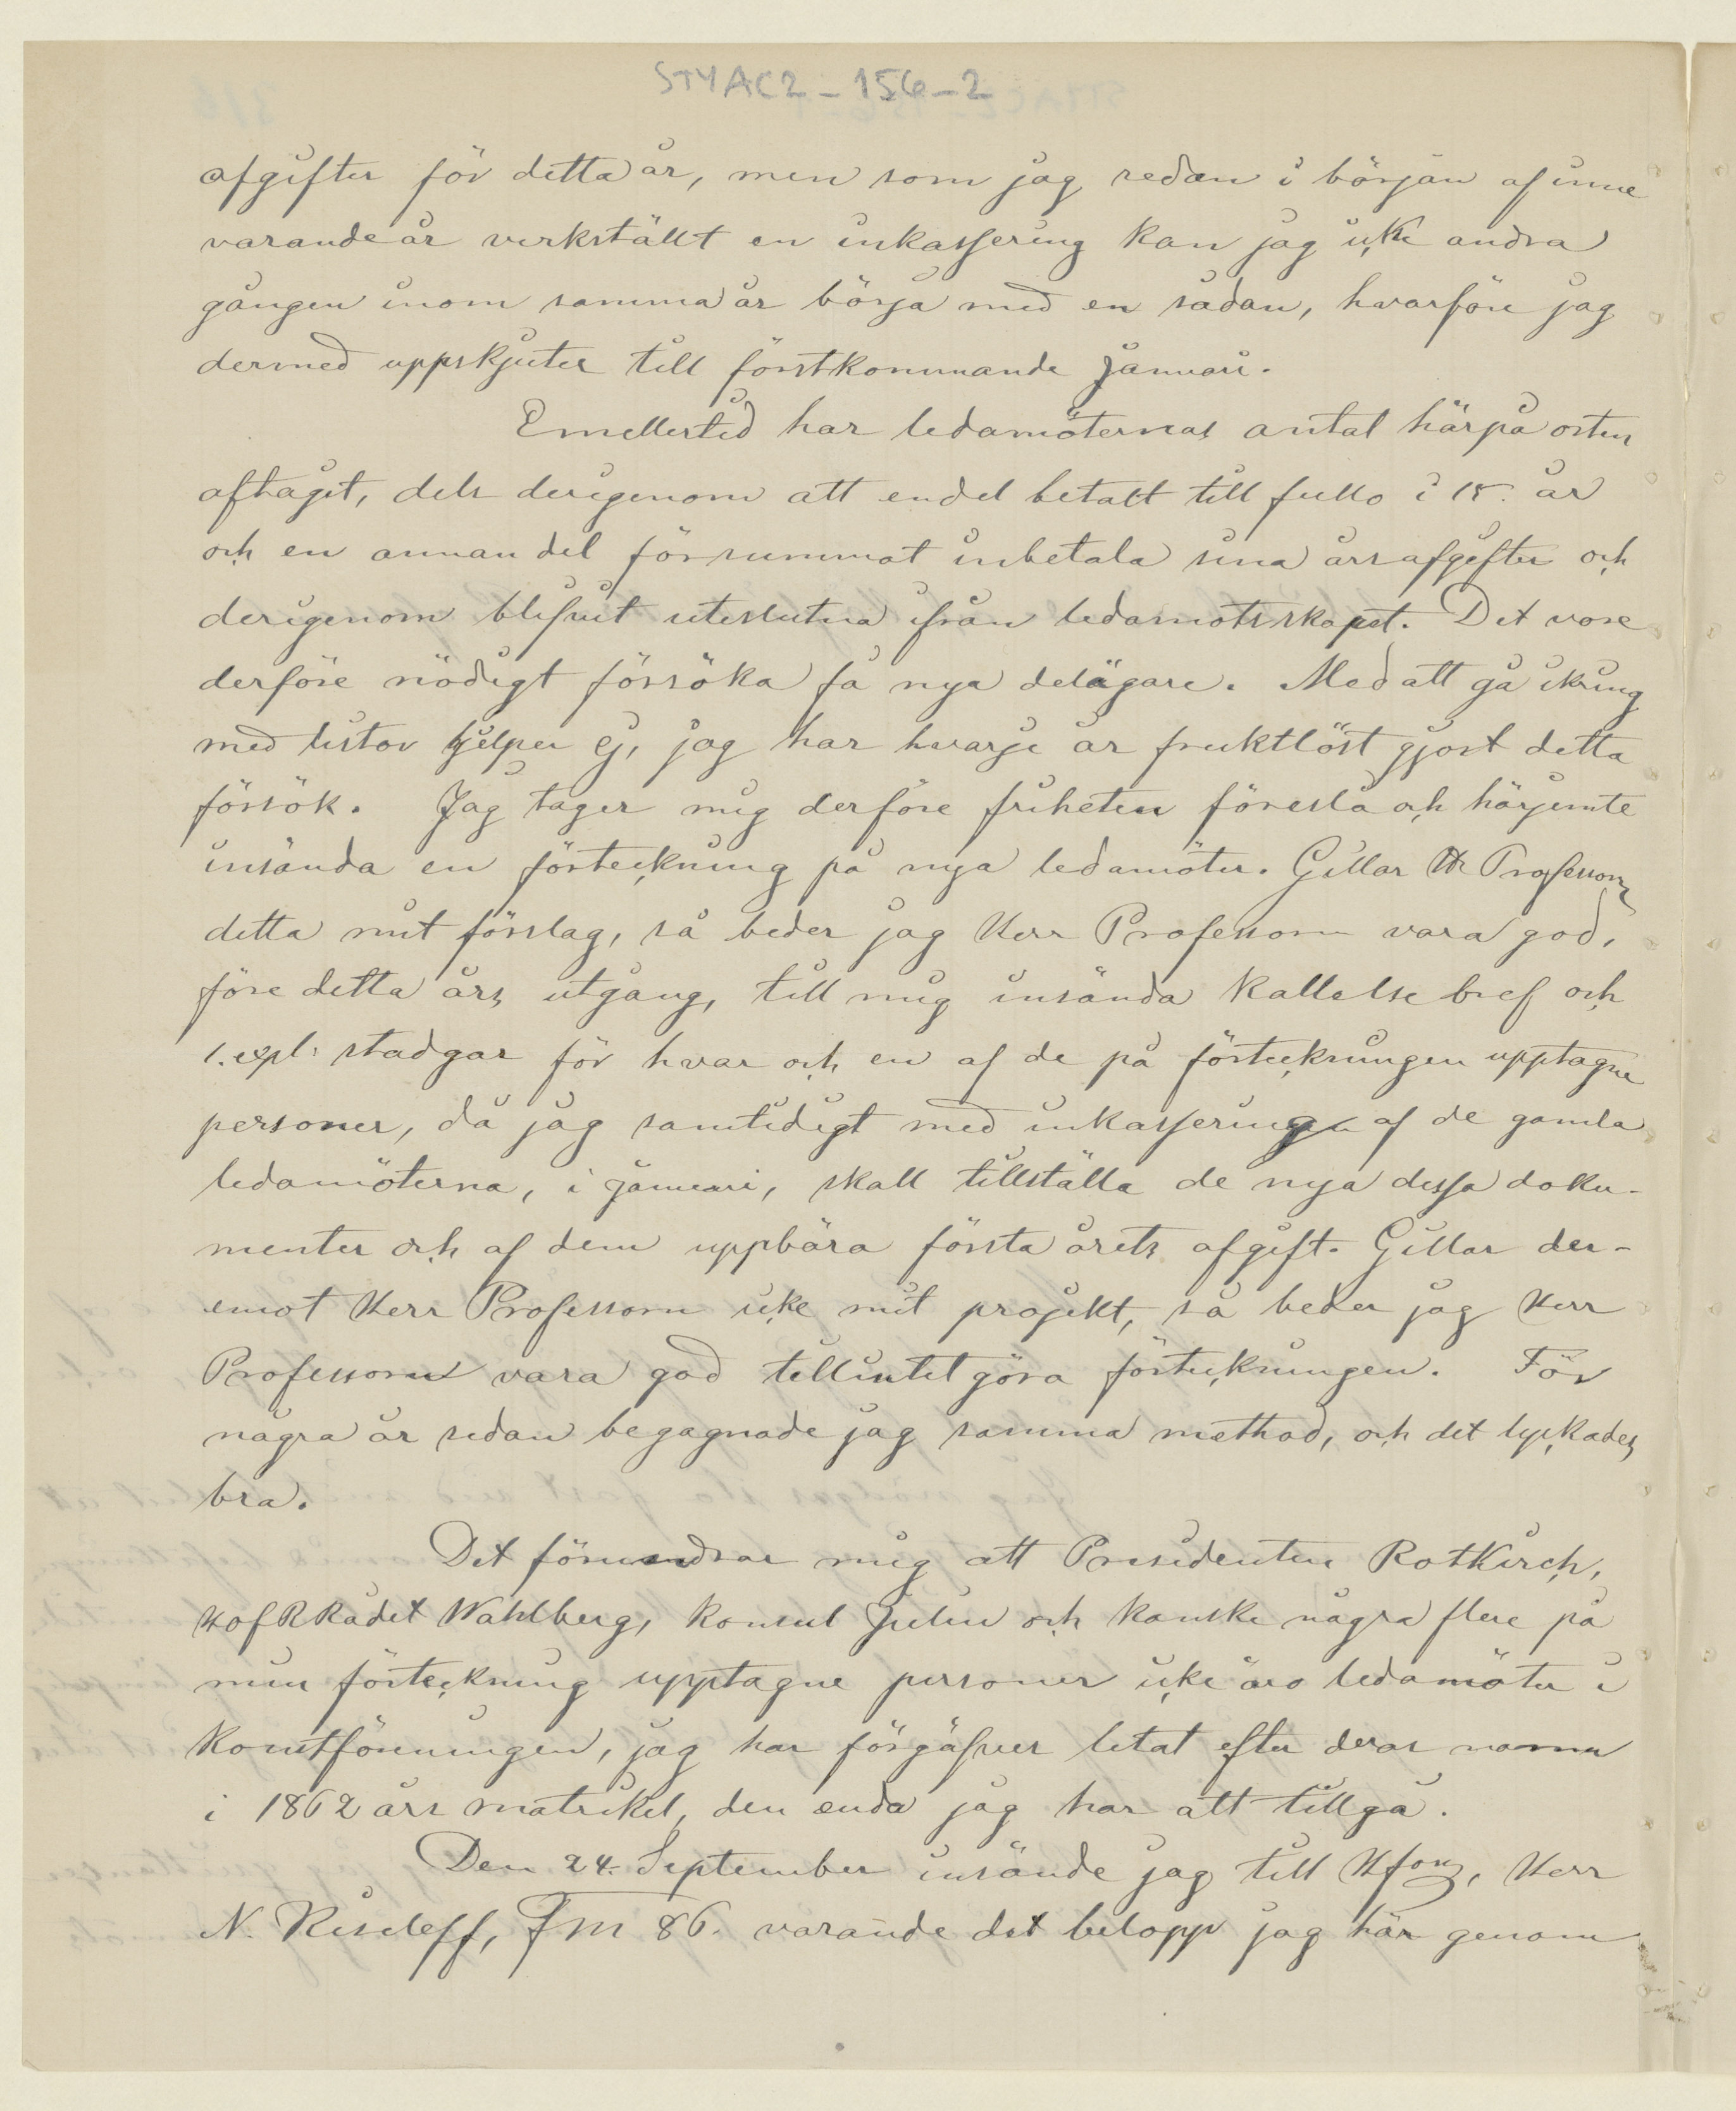 STYAC2-156-2
afgifter för detta år, men som jag redan i början af inne
varande år verkställt en inkassering kan jag icke andra
gången inom samma år börja med en sådan, hvarföre jag
dermed uppskjuter till förstkommande Januari.
Emellertid har ledamöternas antal härpå orten
aftagit, dels derigenom att endel betalt till fullo i 15. år
och en annan del försummat inbetala sina årsafgifter och
derigenom blifvit uteslutna ifrån ledamotsskapet. Det vore
derföre nödigt försöka få nya delägare. Med att gå ikring
med listor hjelper ej, jag har hvarje år fruktlöst gjort detta
försök. Jag tager mig derföre friheten föreslå och härjemte
insända en förteckning på nya ledamöter. Gillar Hr Professorn
detta mitt förslag, så beder jag Herr Professorn vara god,
före detta års utgång, till mig insända kallelse bref och
1. expl: stadgar för hvar och en af de på förteckningen upptagne
personer, då jag samtidigt med inkassering af de gamla
ledamöterna, i januari, skall tillställa de nya dessa doku-
menter och af dem uppbära första årets afgift. Gillar der-
emot Herr Professorn icke mitt projekt, så beder jag Herr
Professorn vara god tillintetgöra förteckningen. För
några år sedan begagnade jag samma method, och det lyckades
bra.
Det förundrar mig att Presidenten Rotkirch,
HofRRådet Wahlberg, Konsul Julin och kanske några flere på
min förteckning upptagne personer icke äro ledamöter i
Konstföreningen, jag har förgäfves letat efter deras namn
i 1862 års matrikel, den enda jag har att tillgå.
Den 24. September insände jag till Hfors, Herr
N. Kiseleff, Fm 86. varande det belopp jag här genom